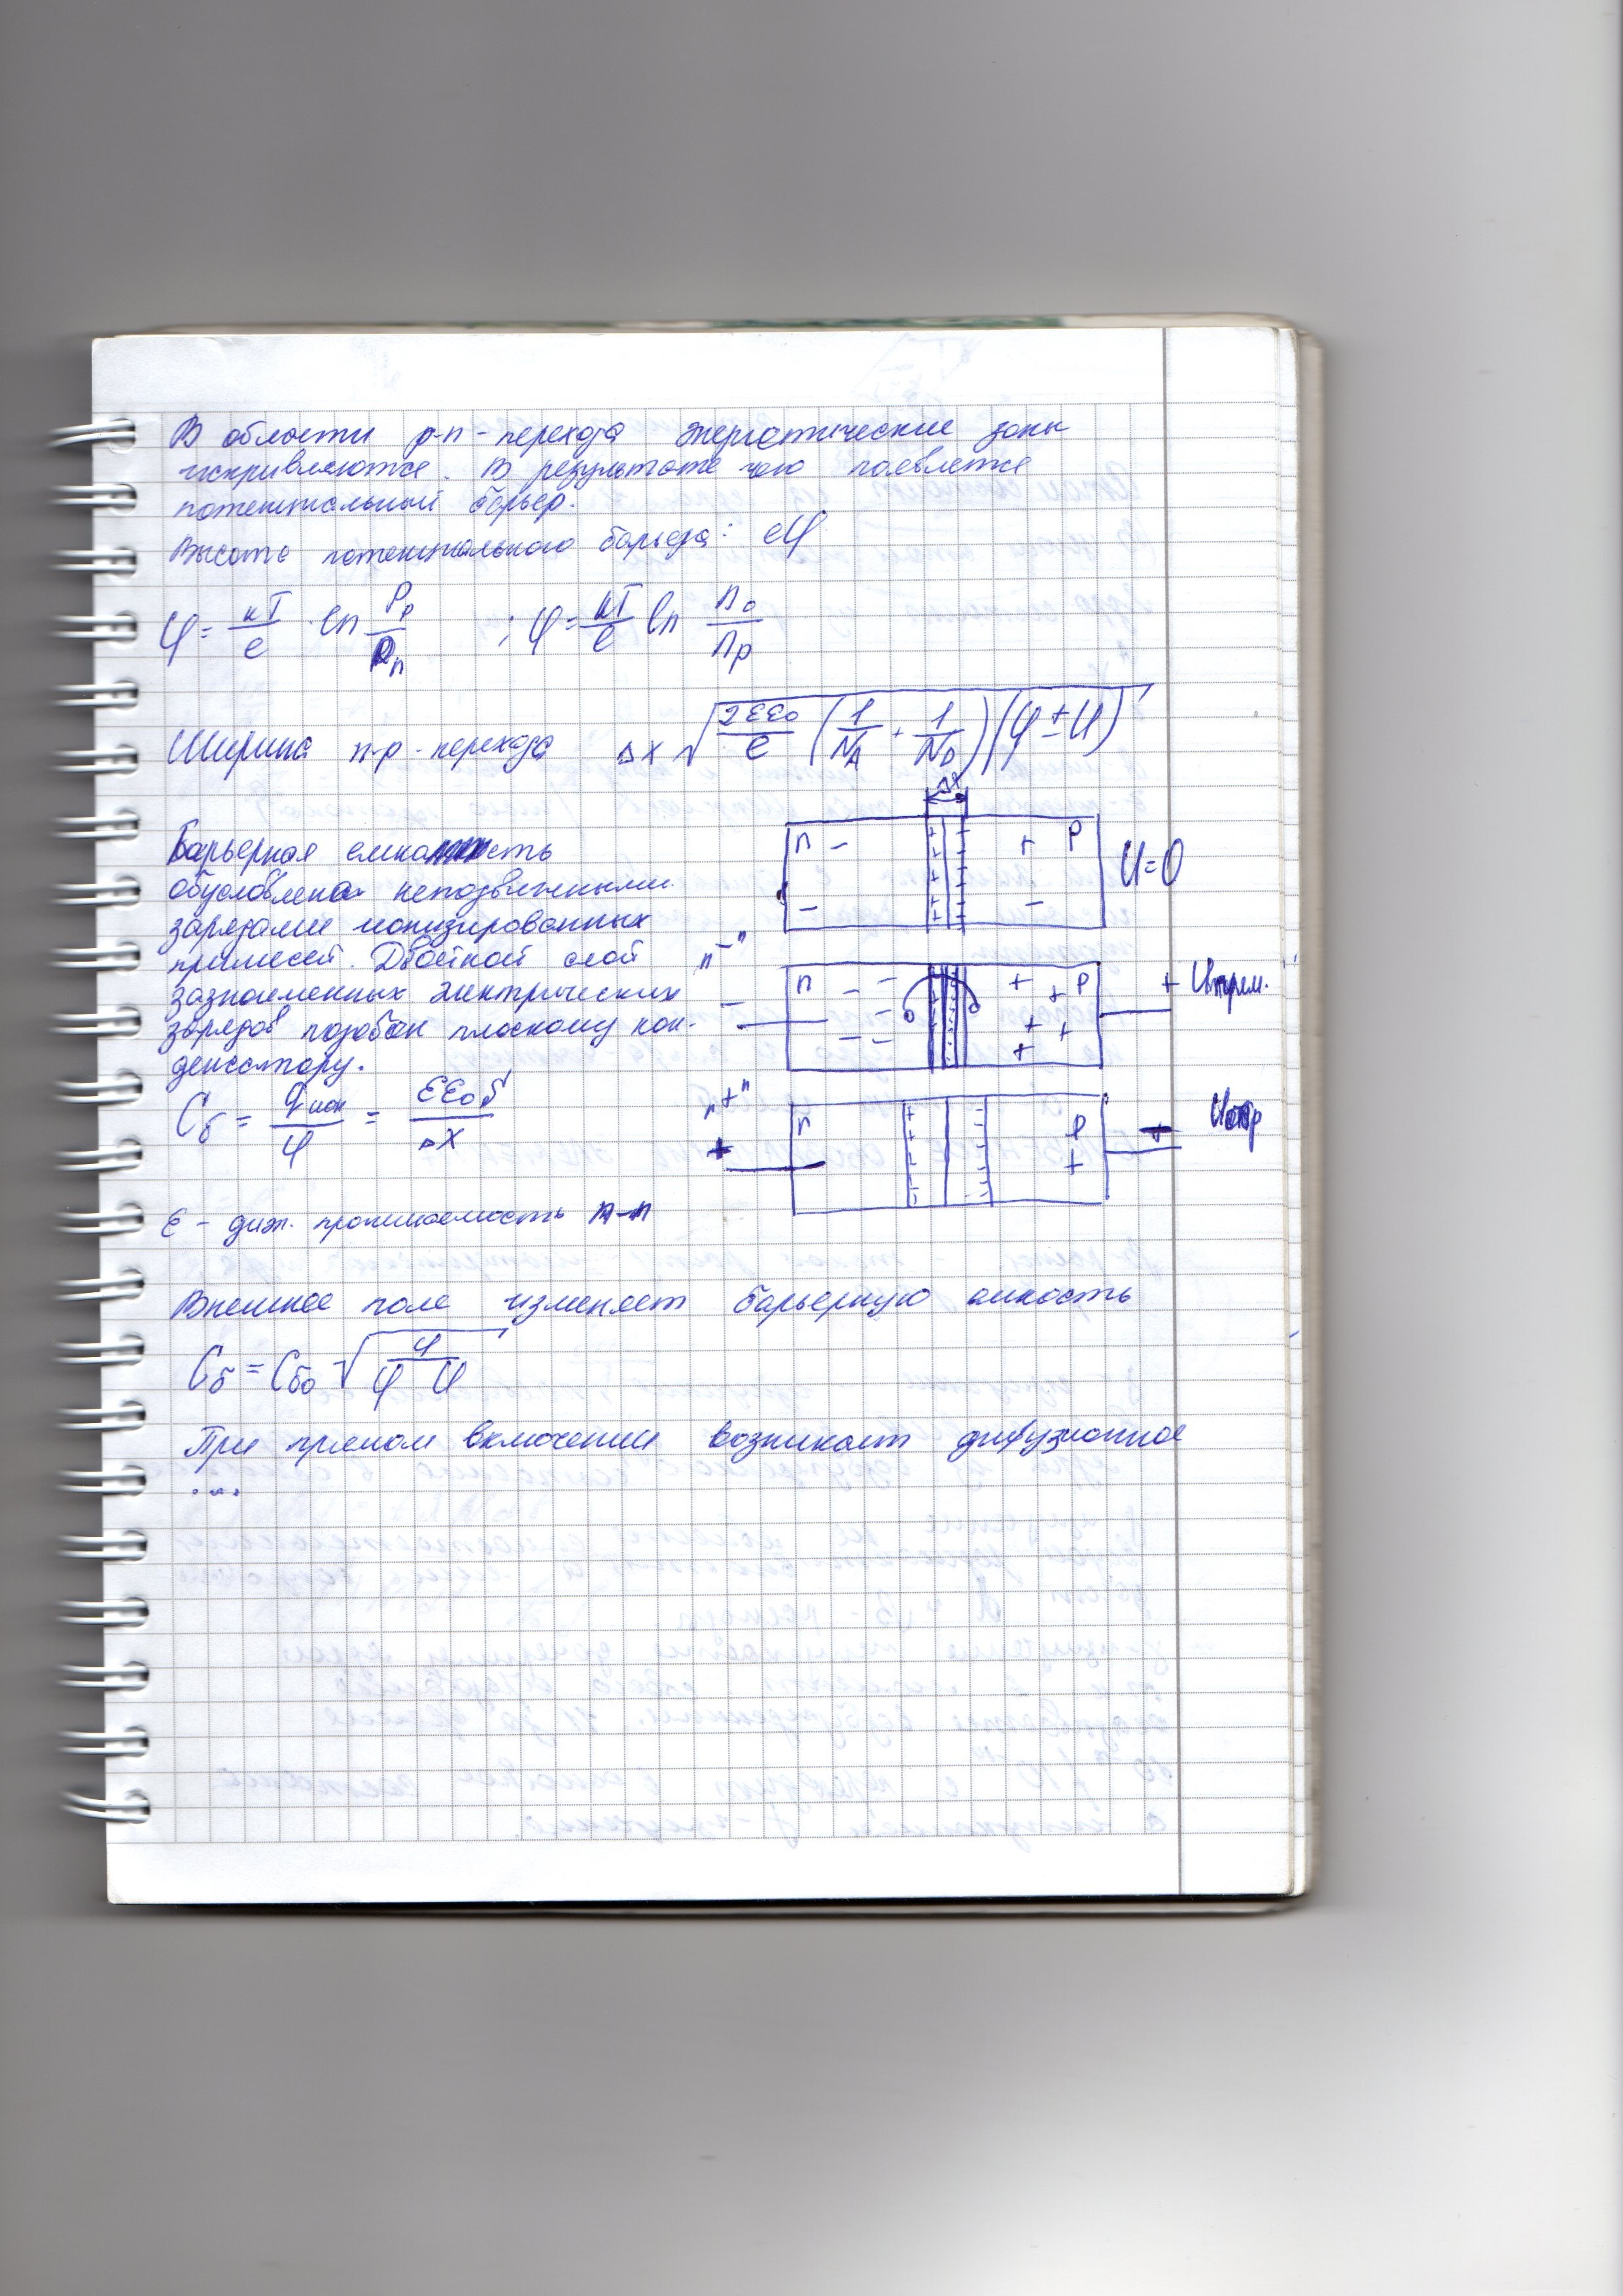 В области p-n-перехода энергетические зоны
искривляются. В результате чего появляется
потенциальный барьер.
Высота потенциального барьера: eφ
φ = kT/e · ln Pp/Pn ; φ = kT/e ln n₀/np
Ширина n-p-перехода Δx √(2εε₀/e (1/NA + 1/ND)(φ ± U))
Δx
Барьерная емкость
обусловлена неподвижными
зарядами ионизированных
примесей. Двойной слой
разноименных электрических
зарядов подобен плоскому кон-
денсатору.
n − + P U=0
− −
"−"
n − − + + P + Uпрям.
−
"+"
n + − P Uобр
+ + −
Cб = qион/φ = εε₀S/Δx
ε – диэл. проницаемость п-п
Внешнее поле изменяет барьерную емкость
Cб = Cб₀ √(φ/φ U)
При прямом включении возникает дифузионное
...